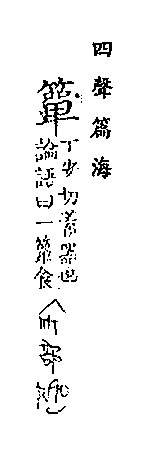 四聲篇海
簞
丁安切葦器也
論語曰一簞食
竹部